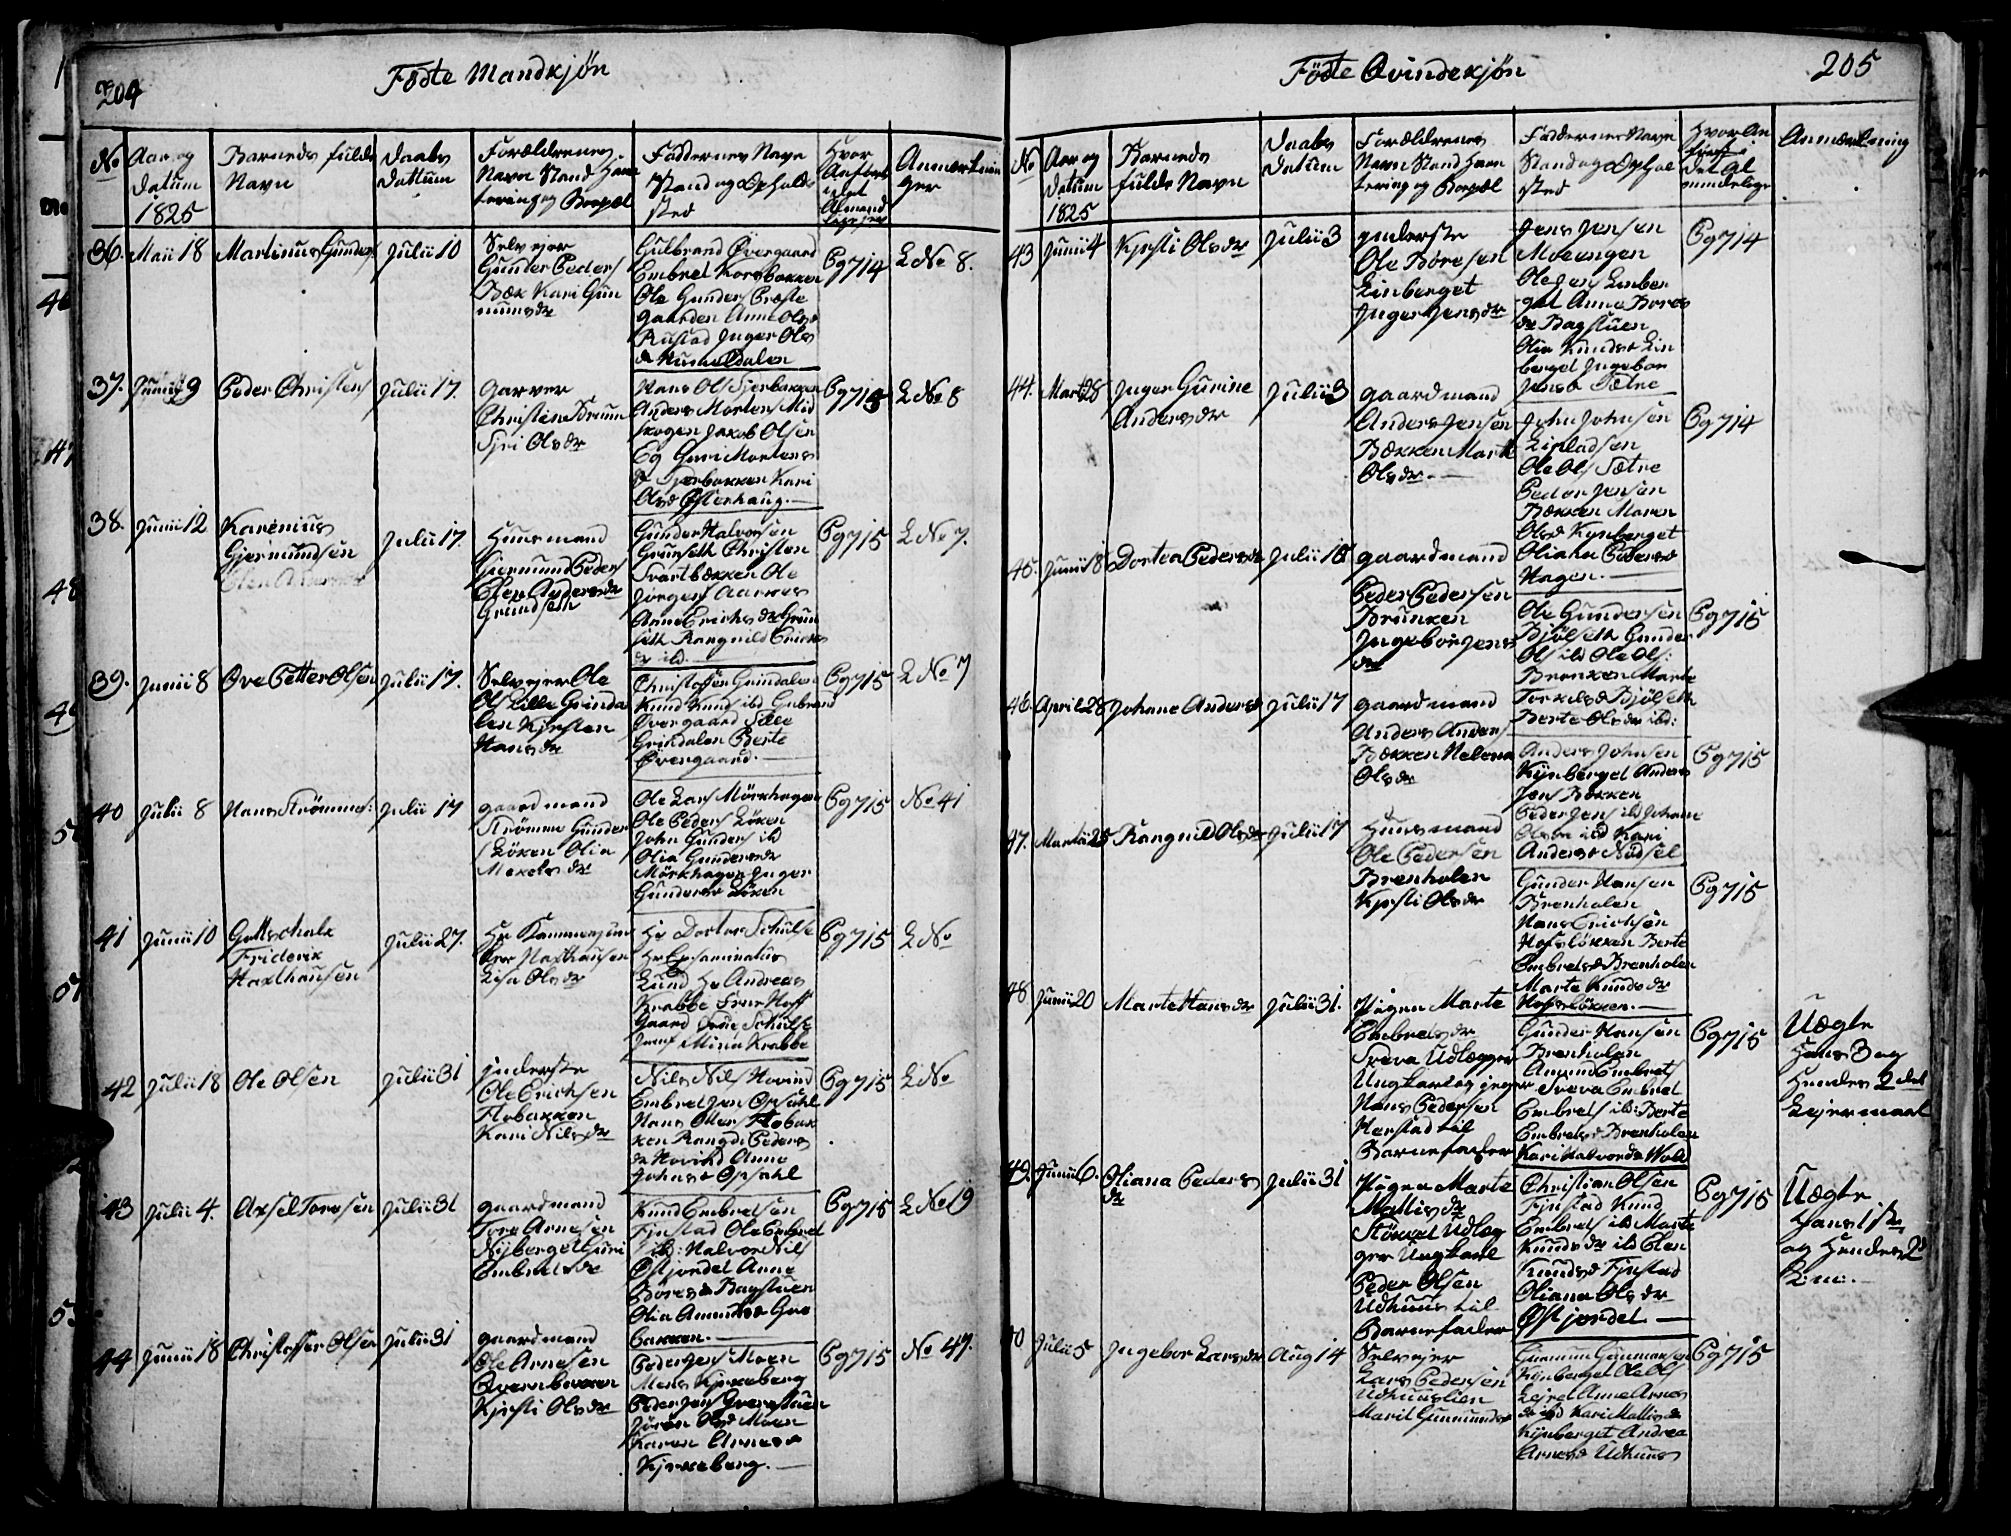 204
Fødte Mandkjøn
No
Aar og
Datum
1825
Barneds fulde
Navn
Daabs
Dattum
Forældrenes
Navn Stand Han
tering og Boepæl
Faddernes Navn
Stand og Opholds
sted
Hvor
Anført
i det
Almind
Anmerknin
ger
36.
Maii 18
Martinus Gunders
Julii 10
Selvejer
Gunder Peders
Bæk Kari Gun
munsdr
Gulbrand Øvergaard
Embret Korsbakken
Ole Gunders Præste
gaarden Anne Olsd
Rustad Inger Ols
dr
Pg 714
L No 8.
37.
Junii 9
Peder Christens
Julii 17.
Garver
Christen Bruun
Siri Olsdr
Hans Ols Sjerbakken
Anders Mortens Mid
skogen Jakob Olsen
Eg Guri Mortens
dr Sjerbakken Kari
Olsd Østerhaug.
Pg 715
L No 8
38.
Junii 12
Karenius
Gjermundsen
Julii 17.
Huusmand
Giermund Peders
Elen Andersdr
Grundseth
Gunder Halvorsen
Grunseth Christen
Svartbækken Ole
Jørgens Aarnes
Anne Erichsdr Grun
seth Rangnild Erichs
dr ibd.
Pg 715
L No 7.
39.
Junii 8
Ove Petter Olsen
Julii 17.
Selvejer Ole
Ols Lille Grinda
len Kjersten
Hansdr
Christoffer Grindalen
Knud Knuds ibd Gubrand
Øvergaard
Grindalen Berte
Øvergaard.
Pg 715
L No 7
40
Julii 8
Hans Strømmes:
Julii 17
gaardmand
Strømme Gunder
s Løken Olia
Mexelsdr
Ole Lars Mörkhagen
Ole Peders Löken
John Gunders ibd
Olia Gundersdr
Mörkhagen Inger
Gundersdr Löken
Pg 715
No 41
41
Junii 10
Gottschalk
Friderik
Haxthausen
Julii 27.
Hr Kammerjun
ker Haxthausen
Lisa Olsdr
Hr Doctor Schulse
Hr Examinatus
Lund Hr Andreas
Krabbe Frue Hoff
Gaard Frue Schulse
Jomf Mina Krabbe
Pg 715
L No
42
Julii 18
Ole Olsen
Julii 31
jnderste
Ole Erichsen
Flobakken
Kari Nilsdr
Nils Nils Hovind
Embret Jens Opsahl
Hans Otters Flobak
ken Rangdi Peders
dr Hovind Anne
Johnsdr Opsahl
Pg 715
L No
43
Julii 4.
Axsel Toresen
Julii 31
gaardmand
Tore Arnesen
Nyberget Guri
Embretsdr
Knud Embretsen
Fjnstad Ole Embret
s ibd: Halvor Nils
Østjordet Anne
Boresdr Bagstuen
Olia Amundsdr Gro
bakken.
Pg 715
L No 19
44
Junii 18
Christoffer Olsen
Julii 31
gaardmand
Ole Arnesen
Qvernbekken
Kjersti Olsdr
Peder Jens Moen
Mons Kjrkeberg
Peder Jens Qvernstuen
Jörön Olsd Moen
Karen Arnesdr
Kjrkeberg.
Pg 715
No 47.
Fødte Qvindekjøn
205
No
Aar og
Datum
1825
Barneds
fulde Navn
Daabs
Datum
Forældrenes
Navn Stand Haan
tering og Boepæl
Faddernes Navn
Stand og Ophol
sted
Hvor An
ført i
det Al
mindelige
Anmærkning
43
Junii 4
Kjrsti Olsdr
Julii 3
jnderste
Ole Boresen
Linberget
Inger Jensdr
Jens Jensen
Moeengen
Ole Jens Linber
get Anne Bores
dr Bagstuen
Olia Knudsdr Lin
berget Ingebor
Jensdr Sætre
Pg 714
44.
Marti 28
Inger Gurine
Andersdr
Julii 3
gaardmand
Anders Jensen
Bækken Marte
Olsdr.
John Johnsen
Ole Ols Sætre
Peder Jensen
Bækken Maren
Olsd Kynberget
Oliana Pedersd
Hagen.
Pg 714
45.
Junii 18
Dortea Pedersdr
Julii 10
gaardmand
Peder Pedersen
Brunken
Ingebor Jens
dr
Ole Gundersen
Bjölseth Gunder
Ols ibd Ole Ols:
Brenken Marte
Torkelsd Bjölseth
Berte Olsdr ibd:
Pg 715
46.
April 28
Johane Andersd
Julii 17
gaardmand
Anders Anders
Bækken Helena
Olsdr
Anders Johnsen
Kynberget Anders
Jens Bækken
Peder Jens ibd Johane
Olsdr ibd Kari
Andersdr Nödsel
Pg 715
47.
Martii 25
Rangnild Olsdr
Julii 17
Huusmand
Ole Pedersen
Brenholen
Kjrsti Olsdr
Gunder Hansen
Brenholen
Hans Erichsen
Hofslökken Berte
Embretsd Brenholen
Marte Knudsdr
Hofslökken.
Pg 715
48.
Junii 20
Marte Hansdr
Julii 31.
Pigen Marte
Embretsdr
Sveva Udlægger
Ungkarl og jeger
Hans Pedersen
Herstad til
Barnefader
Gunder Hansen
Brenholen
Amund Embrets
Sveva Embret
Embrets ibd: Berte
Embretsd Brenholen
Kari Halvorsd Wold
Pg 715
Uægte
Hans 3 og
Hendes 2det
Lejermaal
49.
Junii 6.
Oliana Peders
dr
Julii 31
Pigen Marte
Mattisdr
Störkel Udlæg
ger Ungkarl
Peder Olsen
Udhuus til
Barnefader
Christian Olsen
Fjnstad Knud
Embrets ibd Marte
Knudsdr ibd Elen
Knudsd Fjnstad
Oliana Olsdr
Østjordet
Pg 715
Uægte
Hans 1ste
og Hendes 2d
Leierm.
50
Julii 5
Ingebor Larsdr
Aug 14
Selvejer
Lars Pedersen
Udhuuslien
Marit Gunmundsdr
Gunmun Gunmunsen
Kynberget Ole Ols
Lejret Anne Arnes
dr ibd Kari Mattisdr
Kynberget Andrea
Arnesd Udhuus
Pg 715